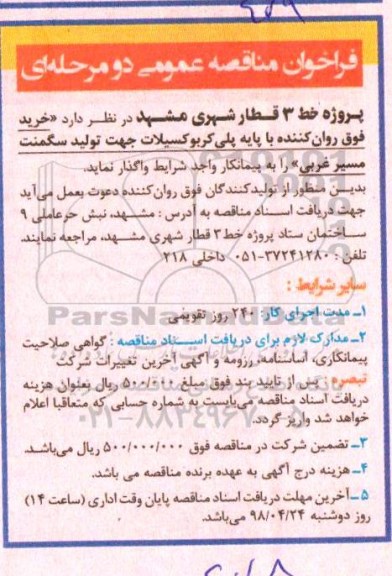 فراخوان مناقصه عمومی دو مرحله‌ای
پروژه خط ۳ قطار شهری مشهد در نظر دارد «خرید
فوق روان‌کننده با پایه پلی‌کربوکسیلات جهت تولید سگمنت
مسیر غربی» را به پیمانکار واجد شرایط واگذار نماید.
بدین منظور از تولیدکنندگان فوق روان‌کننده دعوت بعمل می‌آید
جهت دریافت اسناد مناقصه به آدرس : مشهد، نبش حرعاملی ۹
ساختمان ستاد پروژه خط ۳ قطار شهری مشهد، مراجعه نمایند.
تلفن : ۳۷۲۴۱۲۸۰-۰۵۱ داخلی ۲۱۸
سایر شرایط :
۱ـ مدت اجرای کار: ۲۴۰ روز تقویمی
۲ـ مدارک لازم برای دریافت اسناد مناقصه : گواهی صلاحیت
پیمانکاری، اساسنامه، رزومه و آگهی آخرین تغییرات شرکت
تبصره : پس از تایید بند فوق مبلغ ۵۰۰/۰۰۰ ریال بعنوان هزینه
دریافت اسناد مناقصه می‌بایست به شماره حسابی که متعاقبا اعلام
خواهد شد واریز گردد.
۳ـ تضمین شرکت در مناقصه فوق ۵۰۰/۰۰۰/۰۰۰ ریال می‌باشد.
۴ـ هزینه درج آگهی به عهده برنده مناقصه می باشد.
۵ـ آخرین مهلت دریافت اسناد مناقصه پایان وقت اداری (ساعت ۱۴)
روز دوشنبه ۹۸/۰۴/۲۴ می‌باشد.
ParsNamadData
۰۲۱-۸۸۳۴۹۶۷۰